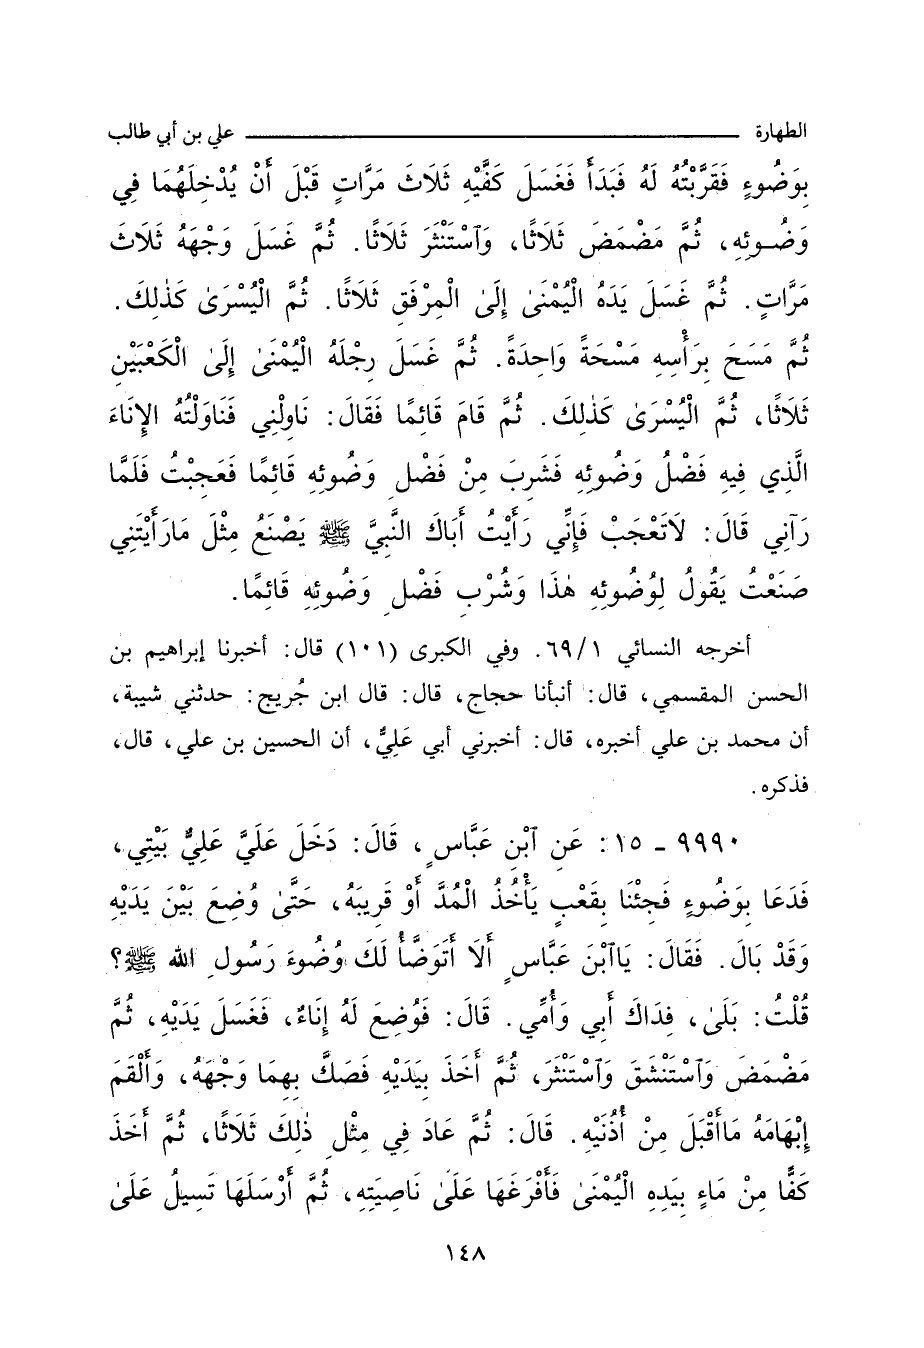 الطهارة علي بن أبي طالب
بِوَضُوءٍ فَقَرَّبْتُهُ لَهُ فَبَدَأَ فَغَسَلَ كَفَّيْهِ ثَلَاثَ مَرَّاتٍ قَبْلَ أَنْ يُدْخِلَهُمَا فِي
وَضُوئِهِ، ثُمَّ مَضْمَضَ ثَلَاثًا، وَٱسْتَنْثَرَ ثَلَاثًا. ثُمَّ غَسَلَ وَجْهَهُ ثَلَاثَ
مَرَّاتٍ. ثُمَّ غَسَلَ يَدَهُ الْيُمْنَىٰ إِلَىٰ الْمِرْفَقِ ثَلَاثًا. ثُمَّ الْيُسْرَىٰ كَذٰلِكَ.
ثُمَّ مَسَحَ بِرَأْسِهِ مَسْحَةً وَاحِدَةً. ثُمَّ غَسَلَ رِجْلَهُ الْيُمْنَىٰ إِلَىٰ الْكَعْبَيْنِ
ثَلَاثًا، ثُمَّ الْيُسْرَىٰ كَذٰلِكَ. ثُمَّ قَامَ قَائِمًا فَقَالَ: نَاوِلْنِي فَنَاوَلْتُهُ الإِنَاءَ
الَّذِي فِيهِ فَضْلُ وَضُوئِهِ فَشَرِبَ مِنْ فَضْلِ وَضُوئِهِ قَائِمًا فَعَجِبْتُ فَلَمَّا
رَآنِي قَالَ: لَاتَعْجَبْ فَإِنِّي رَأَيْتُ أَبَاكَ النَّبِيَّ ﷺ يَصْنَعُ مِثْلَ مَارَأَيْتَنِي
صَنَعْتُ يَقُولُ لِوُضُوئِهِ هٰذَا وَشُرْبِ فَضْلِ وَضُوئِهِ قَائِمًا.
أخرجه النسائي ٦٩/١. وفي الكبرى (١٠١) قال: أخبرنا إبراهيم بن
الحسن المقسمي، قال: أنبأنا حجاج، قال: قال ابن جُريج: حدثني شيبة،
أن محمد بن علي أخبره، قال: أخبرني أبي عَلِيٌّ، أن الحسين بن علي، قال،
فذكره.
٩٩٩٠ - ١٥: عَنِ ٱبْنِ عَبَّاسٍ، قَالَ: دَخَلَ عَلَيَّ عَلِيٌّ بَيْتِي،
فَدَعَا بِوَضُوءٍ فَجِئْنَا بِقَعْبٍ يَأْخُذُ الْمُدَّ أَوْ قَرِيبَهُ، حَتَّىٰ وُضِعَ بَيْنَ يَدَيْهِ
وَقَدْ بَالَ. فَقَالَ: يَاٱبْنَ عَبَّاسٍ أَلَا أَتَوَضَّأُ لَكَ وُضُوءَ رَسُولِ الله ﷺ؟
قُلْتُ: بَلَىٰ، فِدَاكَ أَبِي وَأُمِّي. قَالَ: فَوُضِعَ لَهُ إِنَاءٌ، فَغَسَلَ يَدَيْهِ، ثُمَّ
مَضْمَضَ وَٱسْتَنْشَقَ وَٱسْتَنْثَرَ، ثُمَّ أَخَذَ بِيَدَيْهِ فَصَكَّ بِهِمَا وَجْهَهُ، وَأَلْقَمَ
إِبْهَامَهُ مَاأَقْبَلَ مِنْ أُذُنَيْهِ. قَالَ: ثُمَّ عَادَ فِي مِثْلِ ذٰلِكَ ثَلَاثًا، ثُمَّ أَخَذَ
كَفًّا مِنْ مَاءٍ بِيَدِهِ الْيُمْنَىٰ فَأَفْرَغَهَا عَلَىٰ نَاصِيَتِهِ، ثُمَّ أَرْسَلَهَا تَسِيلُ عَلَىٰ
١٤٨